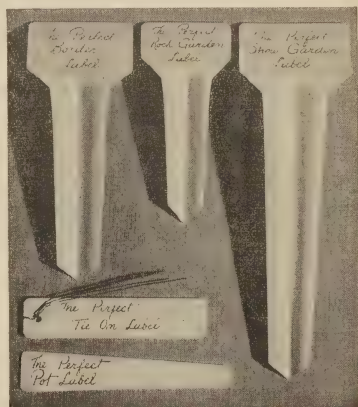 The Perfect
Border
Label
The Perfect
Rock Garden
Label
The Perfect
Show Garden
Label
The Perfect
Tie On Label
The Perfect
Pot Label